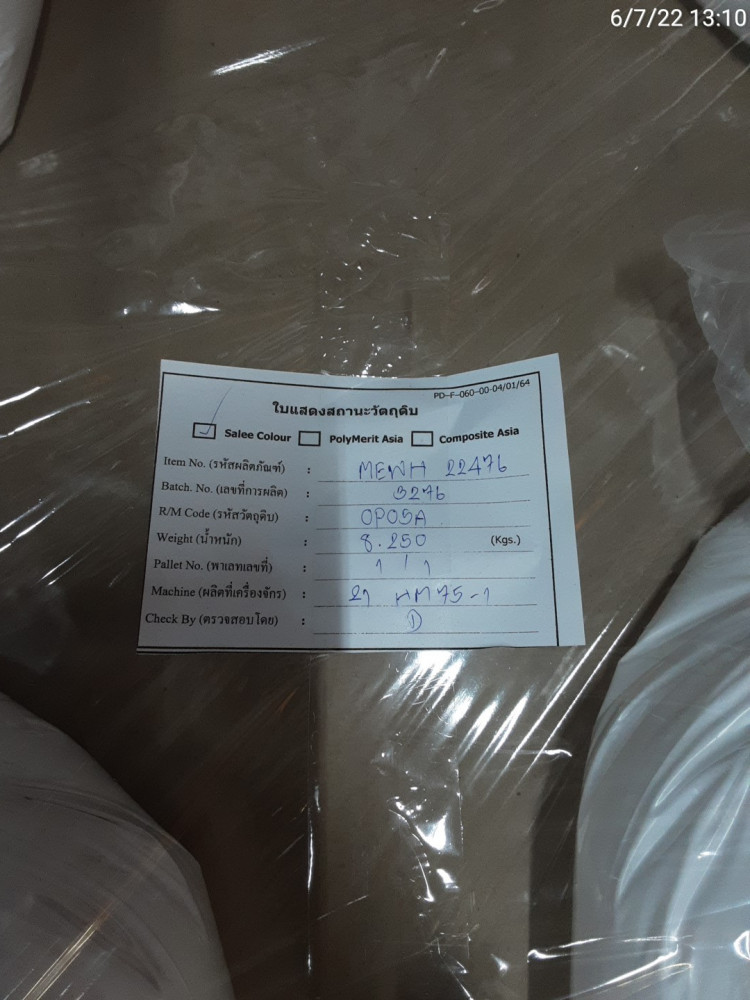 6/7/22 13:10
PD-F-060-00-04/01/64
ใบแสดงสถานะวัตถุดิบ
Salee Colour PolyMerit Asia Composite Asia
Item No. (รหัสผลิตภัณฑ์) : MEWH 22476
Batch. No. (เลขที่การผลิต) : 3276
R/M Code (รหัสวัตถุดิบ) : OP05A
Weight (น้ำหนัก) : 8.250 (Kgs.)
Pallet No. (พาเลทเลขที่) : 1 / 1
Machine (ผลิตที่เครื่องจักร) : 21 HM75-1
Check By (ตรวจสอบโดย) :